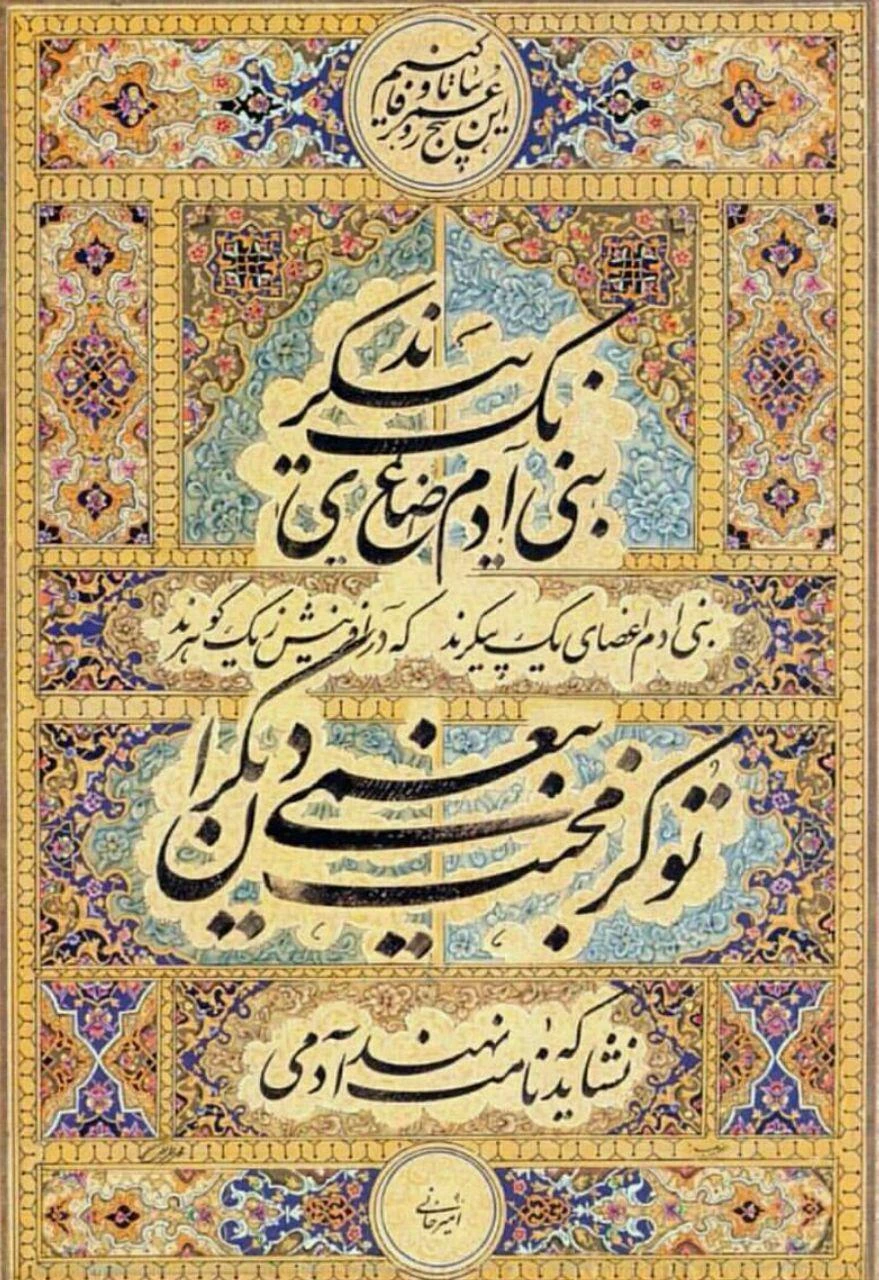 این پنج روز عمر بیا تا وفا کنیم
بنی آدم اعضای یک پیکرند
بنی ادم اعضای یک پیکرند که در آفرینش ز یک گوهرند
تو کز محنت دیگران بیغمی
نشاید که نامت نهند آدمی
امیرخانی